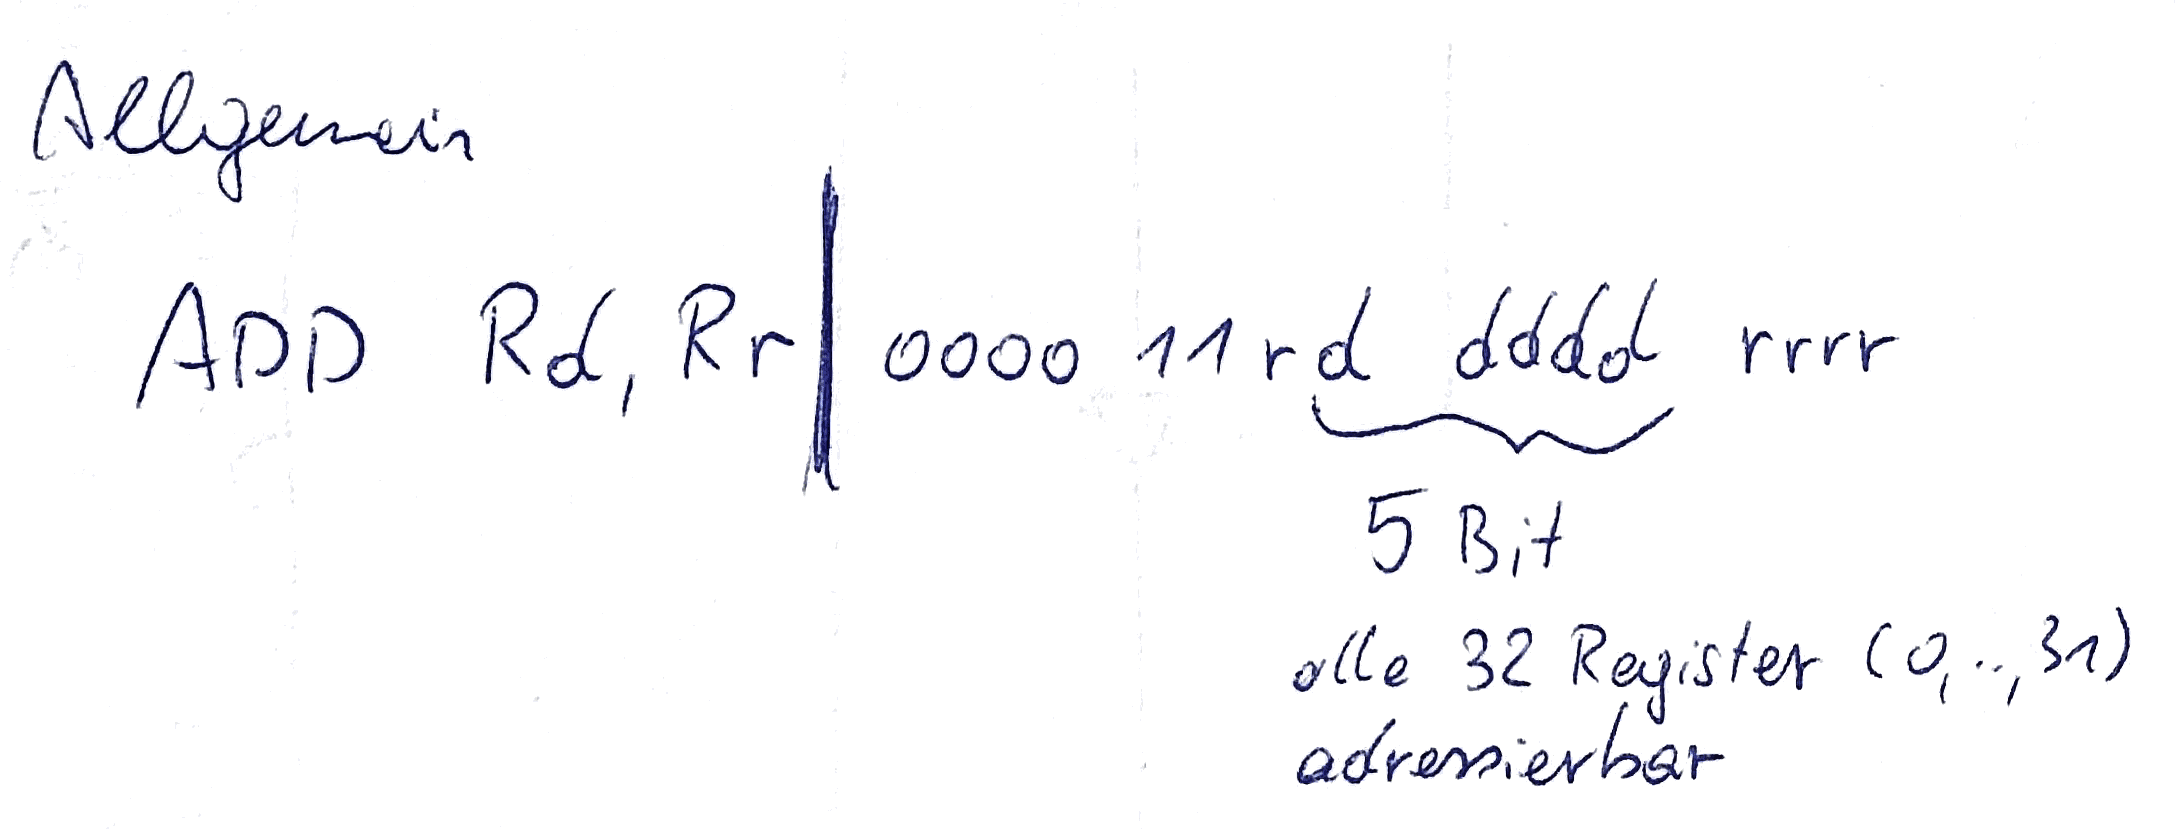 Allgemein
ADD Rd, Rr | 0000 11rd dddd rrrr
5 Bit
alle 32 Register (0,..,31)
adressierbar